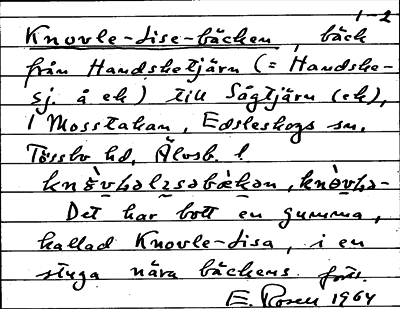 1-2
Knovle-Lise-bäcken, bäck
från Handsketjärn (= Handske-
sj. å ek) till Sågtjärn (ek),
i Mosstakan, Edsleskogs sn.
Tössbo hd, Älvsb. l
Det har bott en gumma,
kallad Knovle-Lisa, i en
stuga nära bäckens
E. Rosell 1964